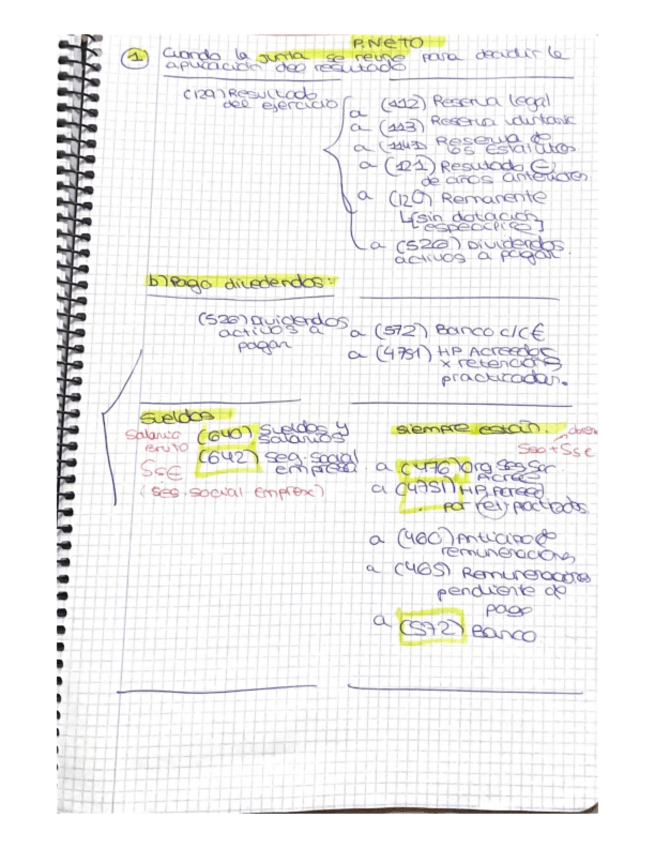 P.NETO
1 Cuando la junta se reune para decidir la
aplicación del resultado
(129) Resultado
del ejercicio
a (112) Reserva legal
a (113) Reserva voluntaria
a (1141) Reserva de
los estatutos
a (121) Resultado (-)
de años anteriores
a (120) Remanente
[sin dotación
específica]
a (526) Dividendos
activos a pagar.
b) Pago dividendos:
(526) Dividendos
activos a
pagar
a (572) Banco c/c €
a (4751) HP Acreedora
x retenciones
practicadas.
Sueldos
Salario
Bruto
(640) Sueldos y
salarios
(642) Seg. social
empresa
SS€
(Seg. social empresa)
siempre están.
SSO + SS€
a (476) Org Seg Soc
Acree
a (4751) HP Acreed
por ret practicadas
a (460) Anticipo de
remuneraciones
a (465) Remuneraciones
pendiente de
pago
a (572) Banco